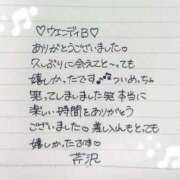 ♡ウェンディB♡
ありがとうございました♡
久しぶりに会えてと〜っても
嬉しかったです♪♪ついめっちゃ
笑ってしまいました笑本当に
楽しい時間をありがとう
ございました♡差し入れもとても
嬉しかったです♡
芹沢